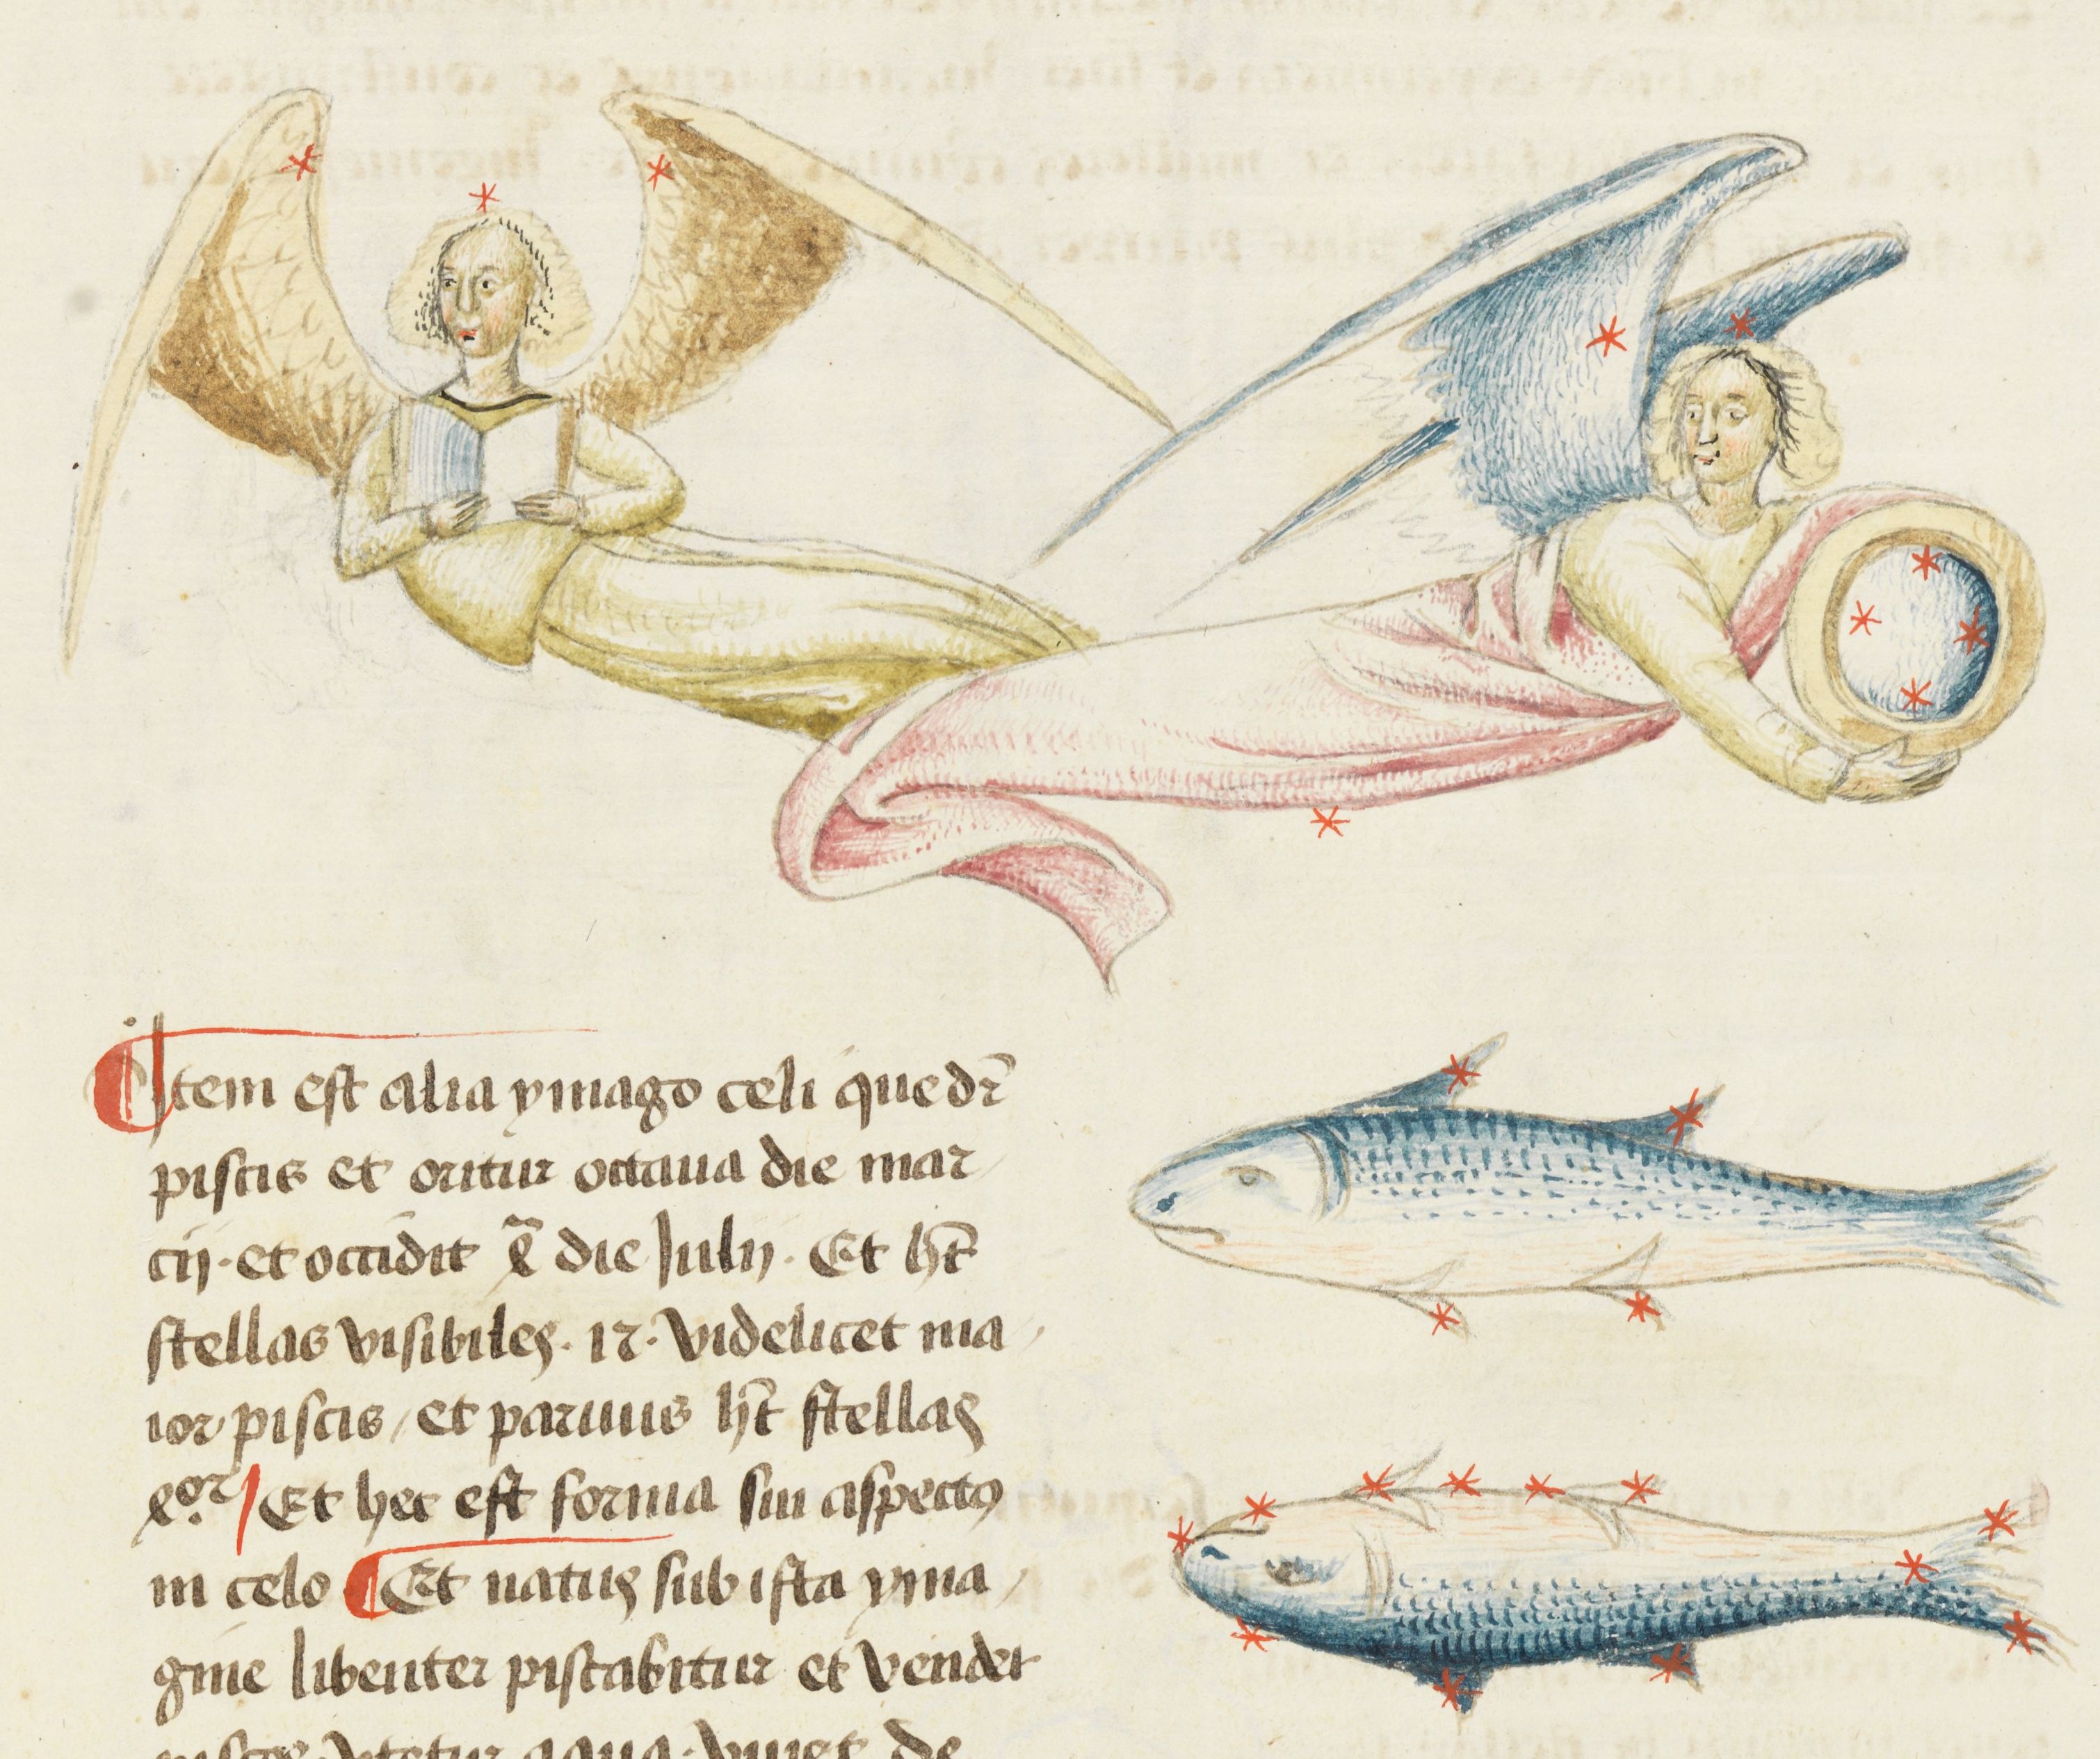 ¶ Item est alia ymago celi que dr̄
piscis et oritur octaua die mar
cij · et occidit x̃ die Julij · Et hn̄t
stellas visibiles · 12 · videlicet ma
ior piscis / et paruus hn̄t stellas
Et hec est forma siu aspectꝰ
in celo ¶ Et natus sub ista yma
gine libenter piscabitur et vendet
pisces utetur aqua · viuet de